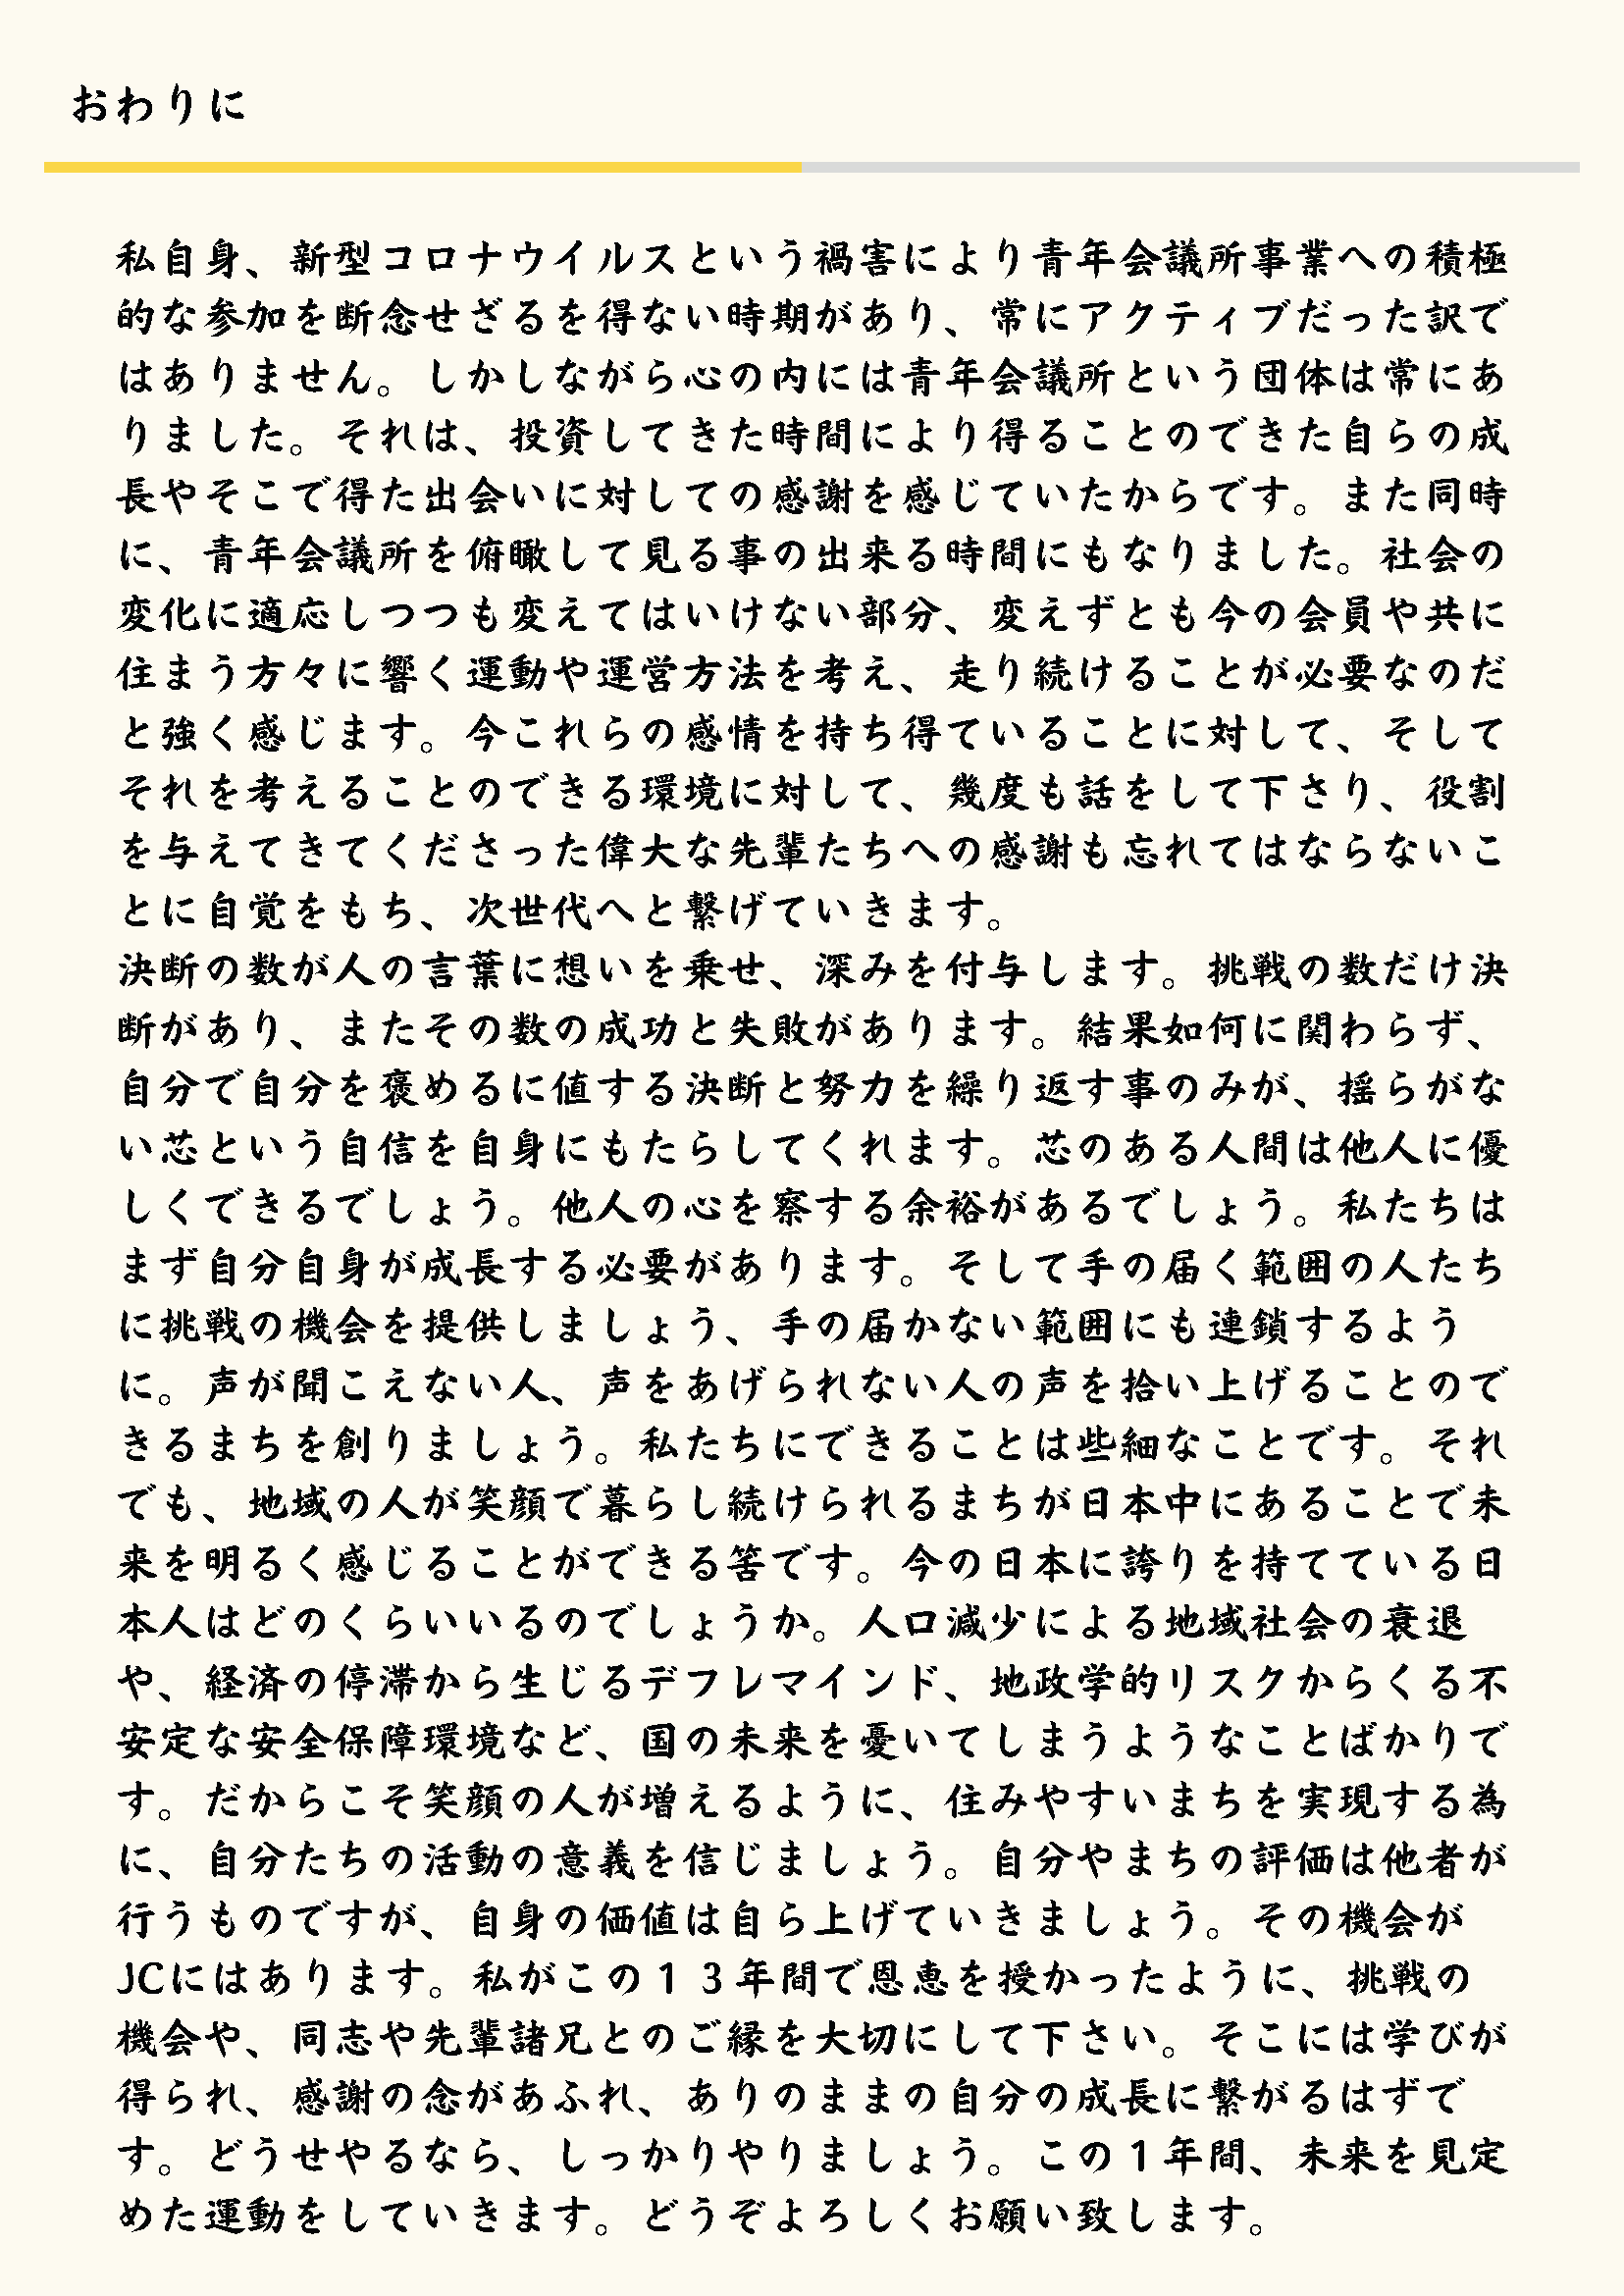 おわりに
私自身、新型コロナウイルスという禍害により青年会議所事業への積極
的な参加を断念せざるを得ない時期があり、常にアクティブだった訳で
はありません。しかしながら心の内には青年会議所という団体は常にあ
りました。それは、投資してきた時間により得ることのできた自らの成
長やそこで得た出会いに対しての感謝を感じていたからです。また同時
に、青年会議所を俯瞰して見る事の出来る時間にもなりました。社会の
変化に適応しつつも変えてはいけない部分、変えずとも今の会員や共に
住まう方々に響く運動や運営方法を考え、走り続けることが必要なのだ
と強く感じます。今これらの感情を持ち得ていることに対して、そして
それを考えることのできる環境に対して、幾度も話をして下さり、役割
を与えてきてくださった偉大な先輩たちへの感謝も忘れてはならないこ
とに自覚をもち、次世代へと繋げていきます。
決断の数が人の言葉に想いを乗せ、深みを付与します。挑戦の数だけ決
断があり、またその数の成功と失敗があります。結果如何に関わらず、
自分で自分を褒めるに値する決断と努力を繰り返す事のみが、揺らがな
い芯という自信を自身にもたらしてくれます。芯のある人間は他人に優
しくできるでしょう。他人の心を察する余裕があるでしょう。私たちは
まず自分自身が成長する必要があります。そして手の届く範囲の人たち
に挑戦の機会を提供しましょう、手の届かない範囲にも連鎖するよう
に。声が聞こえない人、声をあげられない人の声を拾い上げることので
きるまちを創りましょう。私たちにできることは些細なことです。それ
でも、地域の人が笑顔で暮らし続けられるまちが日本中にあることで未
来を明るく感じることができる筈です。今の日本に誇りを持てている日
本人はどのくらいいるのでしょうか。人口減少による地域社会の衰退
や、経済の停滞から生じるデフレマインド、地政学的リスクからくる不
安定な安全保障環境など、国の未来を憂いてしまうようなことばかりで
す。だからこそ笑顔の人が増えるように、住みやすいまちを実現する為
に、自分たちの活動の意義を信じましょう。自分やまちの評価は他者が
行うものですが、自身の価値は自ら上げていきましょう。その機会が
JCにはあります。私がこの１３年間で恩恵を授かったように、挑戦の
機会や、同志や先輩諸兄とのご縁を大切にして下さい。そこには学びが
得られ、感謝の念があふれ、ありのままの自分の成長に繋がるはずで
す。どうせやるなら、しっかりやりましょう。この１年間、未来を見定
めた運動をしていきます。どうぞよろしくお願い致します。